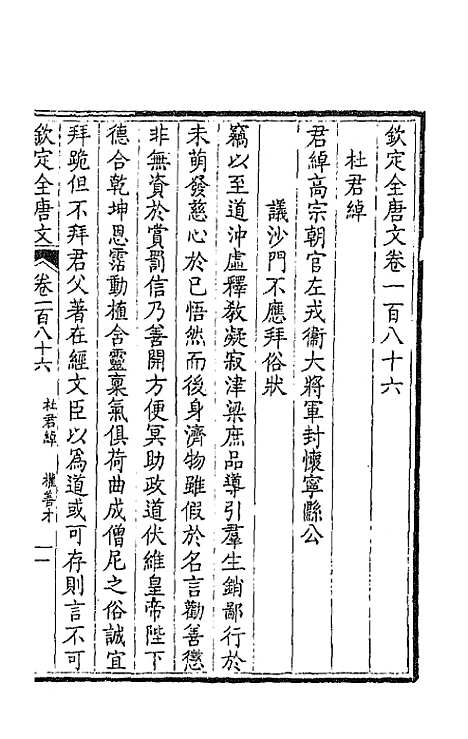 欽定全唐文卷一百八十六
杜君綽
君綽高宗朝官左戎衞大將軍封懷寧縣公
議沙門不應拜俗狀
竊以至道沖虛釋教凝寂津梁庶品導引羣生銷鄙行於
未萌發慈心於已悟然而後身濟物雖假於名言勸善懲
非無資於賞罰信乃善開方便冥助政道伏維皇帝陛下
德合乾坤恩霑動植含靈稟氣俱荷曲成僧尼之俗誠宜
拜跪但不拜君父著在經文臣以爲道或可存則言不可
欽定全唐文
卷一百八十六
杜君綽
權善才
一